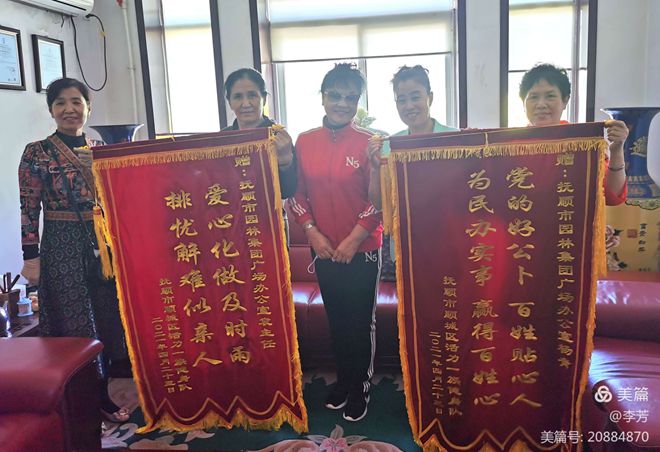 赠：抚顺市园林集团广场办公室袁主任
爱心化做及时雨
排忧解难似亲人
抚顺市顺城区活力一族健身队
二〇二一年四月二十三日
N5
N5
赠：抚顺市园林集团广场办公室
党的好公卜 百姓贴心人
为民办实事 赢得百姓心
抚顺市顺城区活力一族健身队
二〇二一年四月二十三日
美篇
@李芳
美篇号: 20884870